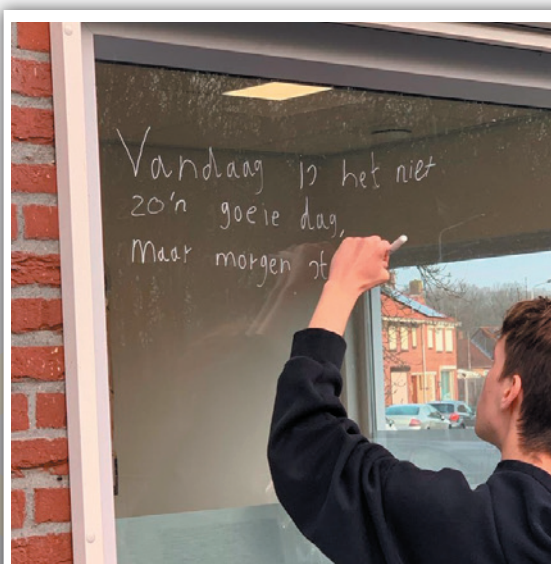 Vandaag is het niet
zo'n goeie dag,
maar morgen